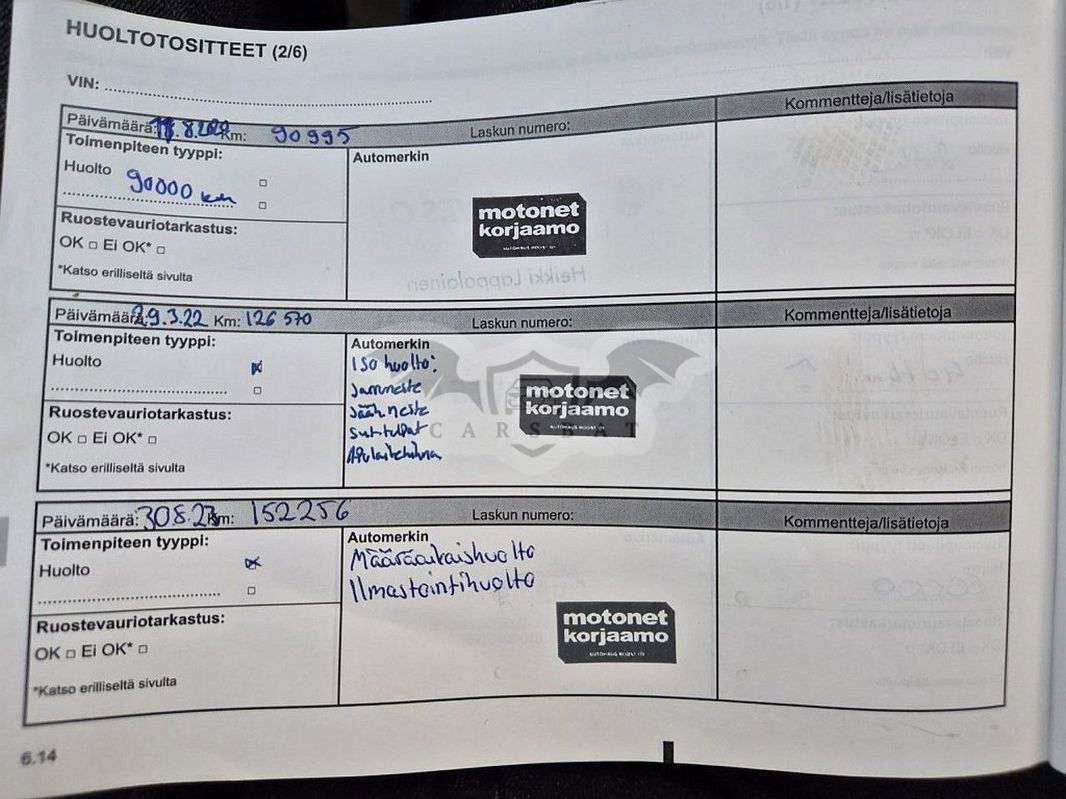 HUOLTOTOSITTEET (2/6)
VIN:
Päivämäärä: Km: 90995 Laskun numero: Kommentteja/lisätietoja
Toimenpiteen tyyppi: Automerkin
Huolto 90000 km
motonet
korjaamo
Ruostevauriotarkastus:
OK □ Ei OK* □
*Katso erilliseltä sivulta
Heikki Lappalainen
Päivämäärä: 29.3.22 Km: 126 570 Laskun numero: Kommentteja/lisätietoja
Toimenpiteen tyyppi: Automerkin
Huolto Iso huolto:
Jarruneste
Jäähneste
motonet
korjaamo
AUTOHAUS ROOST OY
CARSBAT
Ruostevauriotarkastus: Apulaitehihna
OK □ Ei OK* □
*Katso erilliseltä sivulta
Päivämäärä: 30.8.23 Km: 152256 Laskun numero: Kommentteja/lisätietoja
Toimenpiteen tyyppi: Automerkin
Huolto Määräaikaishuolto
Ilmastointihuolto
motonet
korjaamo
Ruostevauriotarkastus:
OK □ Ei OK* □
*Katso erilliseltä sivulta
6.14